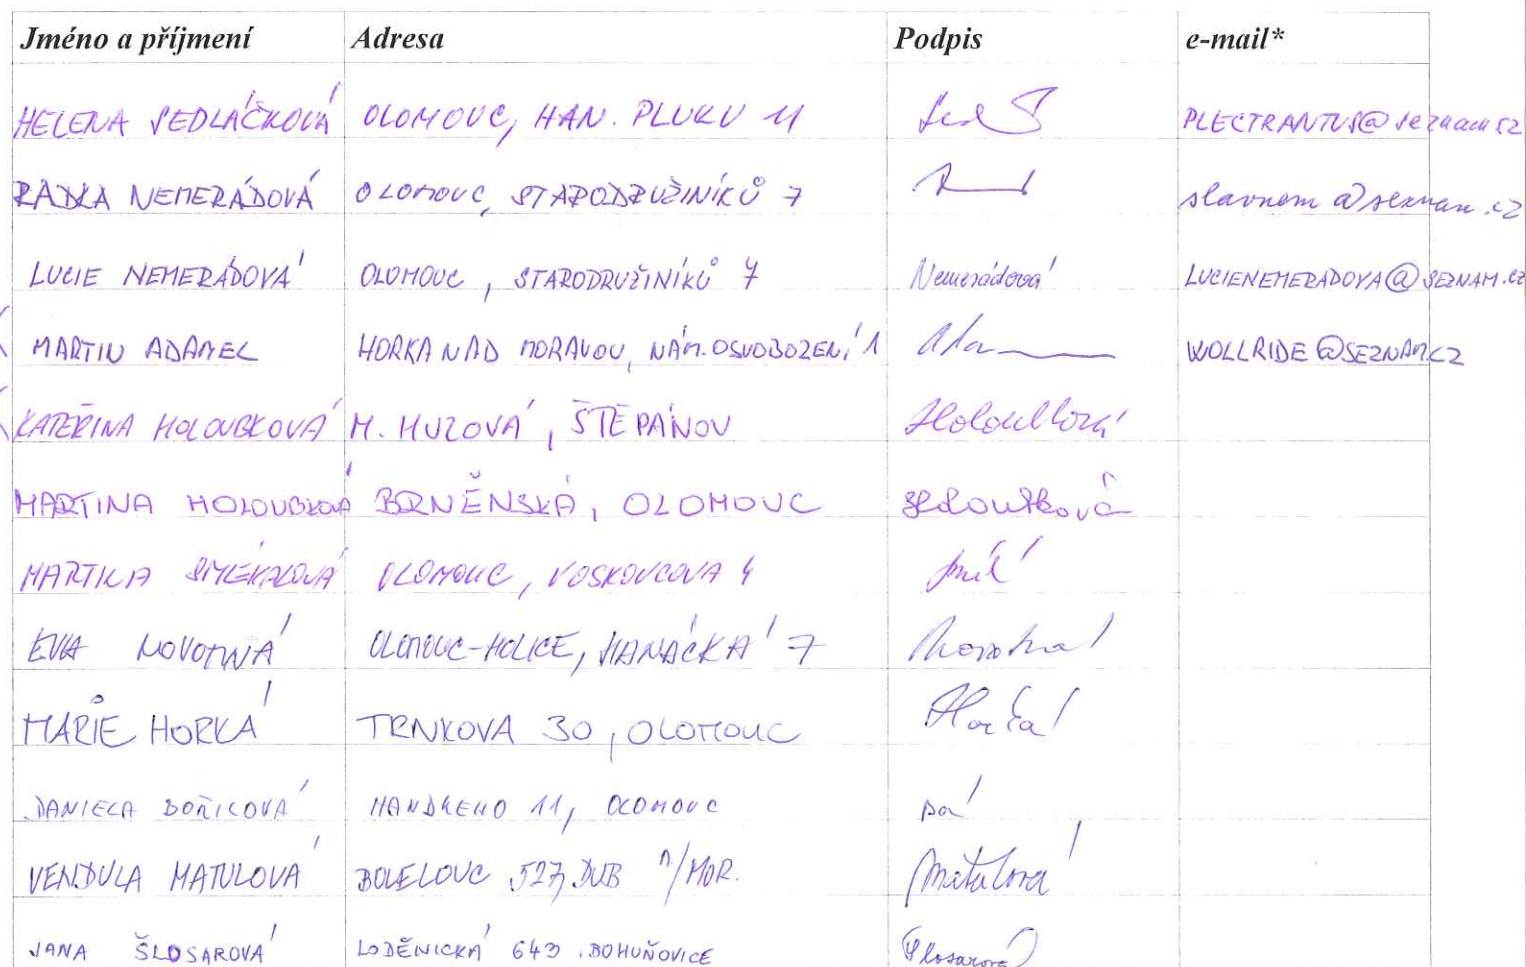 Jméno a příjmení Adresa Podpis e-mail*
HELENA SEDLÁČKOVÁ OLOMOUC, HAN. PLUKU 11 PLECTRANTUS@seznam.cz
RADKA NEMERÁDOVÁ OLOMOUC, STARODRUŽINÍKŮ 7 slavnem@seznam.cz
LUCIE NEMERÁDOVÁ OLOMOUC, STARODRUŽINÍKŮ 7 Nemerádová LUCIENEMERADOVA@SEZNAM.CZ
MARTIN ADAMEL HORKA NAD MORAVOU, NÁM. OSVOBOZENÍ 1 WOLLRIDE@SEZNAM.CZ
KATEŘINA HOLOUBKOVÁ M. HUZOVÁ, ŠTĚPÁNOV Holoubková
MARTINA HOLOUBKOVÁ BRNĚNSKÁ, OLOMOUC Holoubková
MARTINA SMÉKALOVÁ OLOMOUC, VOSKOVCOVA 4
EVA NOVOTNÁ OLOMOUC-HOLICE, HANÁCKÁ 7 Novotná
MARIE HORKÁ TRNKOVA 30, OLOMOUC Horká
DANIELA BOŘILOVÁ HANDKEHO 11, OLOMOUC
VENDULA MATULOVÁ BOLELOUC 527, DUB n/MOR. Matulová
JANA ŠLOSAROVÁ LODĚNICKÁ 643, BOHUŇOVICE Šlosarová